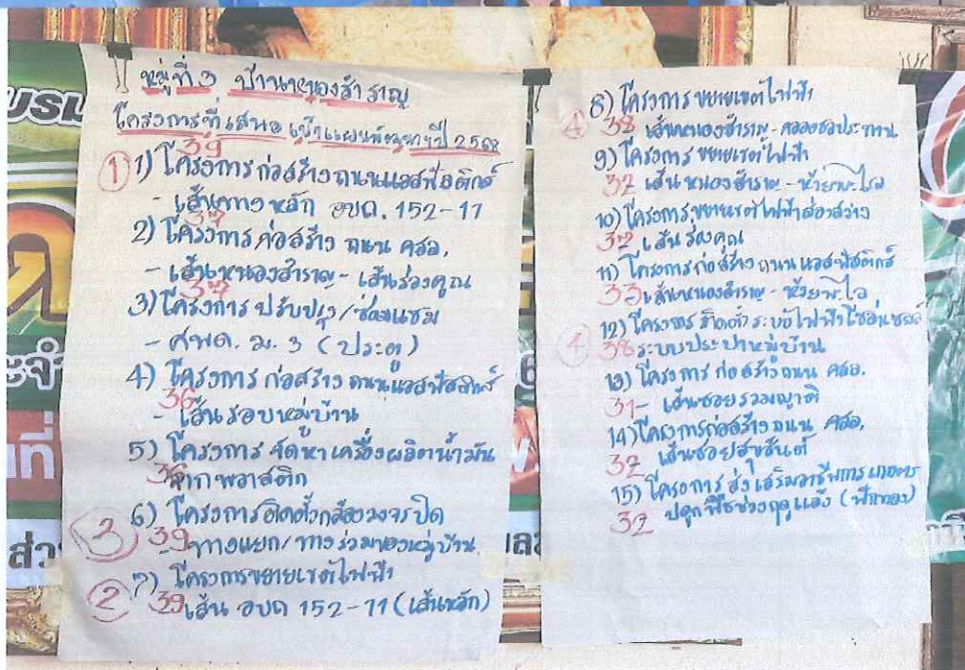 หมู่ที่ 3 บ้านหนองสำราญ
โครงการที่เสนอเข้าแผนพัฒนาฯปี 2568
39
① 1) โครงการก่อสร้างถนนแอสฟัลติกส์
- เส้นทางหลัก อบต. 152-11
37
2) โครงการก่อสร้าง ถนน คสล.
- เส้นหนองสำราญ - เส้นร่องคูณ
37
3) โครงการปรับปรุง/ซ่อมแซม
- ศพด. ม. 3 (ประตู)
4) โครงการก่อสร้างถนนแอสฟัลติกส์
36
- เส้นรอบหมู่บ้าน
5) โครงการ จัดหาเครื่องผลิตน้ำมัน
จากพลาสติก
③ 6) โครงการติดตั้งกล้องวงจรปิด
39 ทางแยก/ทางร่วมของหมู่บ้าน
② 7) โครงการขยายเขตไฟฟ้า
39 เส้น อบต 152-11 (เส้นหลัก)
8) โครงการขยายเขตไฟฟ้า
④ 38 เส้นหนองสำราญ - คลองชลประทาน
9) โครงการ ขยายเขตไฟฟ้า
32 เส้นหนองสำราญ - ห้วย
10) โครงการขยายเขตไฟฟ้าส่องสว่าง
32 เส้น ร่องคูณ
11) โครงการก่อสร้างถนนแอสฟัลติกส์
33 เส้นหนองสำราญ - ห้วย
12) โครงการ ติดตั้งระบบไฟฟ้าโซล่าเซลล์
38 ระบบประปาหมู่บ้าน
13) โครงการ ก่อสร้างถนน คสล.
31 - เส้นซอยรวมญาติ
14) โครงการก่อสร้างถนน คสล.
32 เส้นซอยสุขสันต์
15) โครงการ ส่งเสริมอาชีพการเกษตร
32 ปลูกพืชช่วงฤดูแล้ง (ฟักทอง)